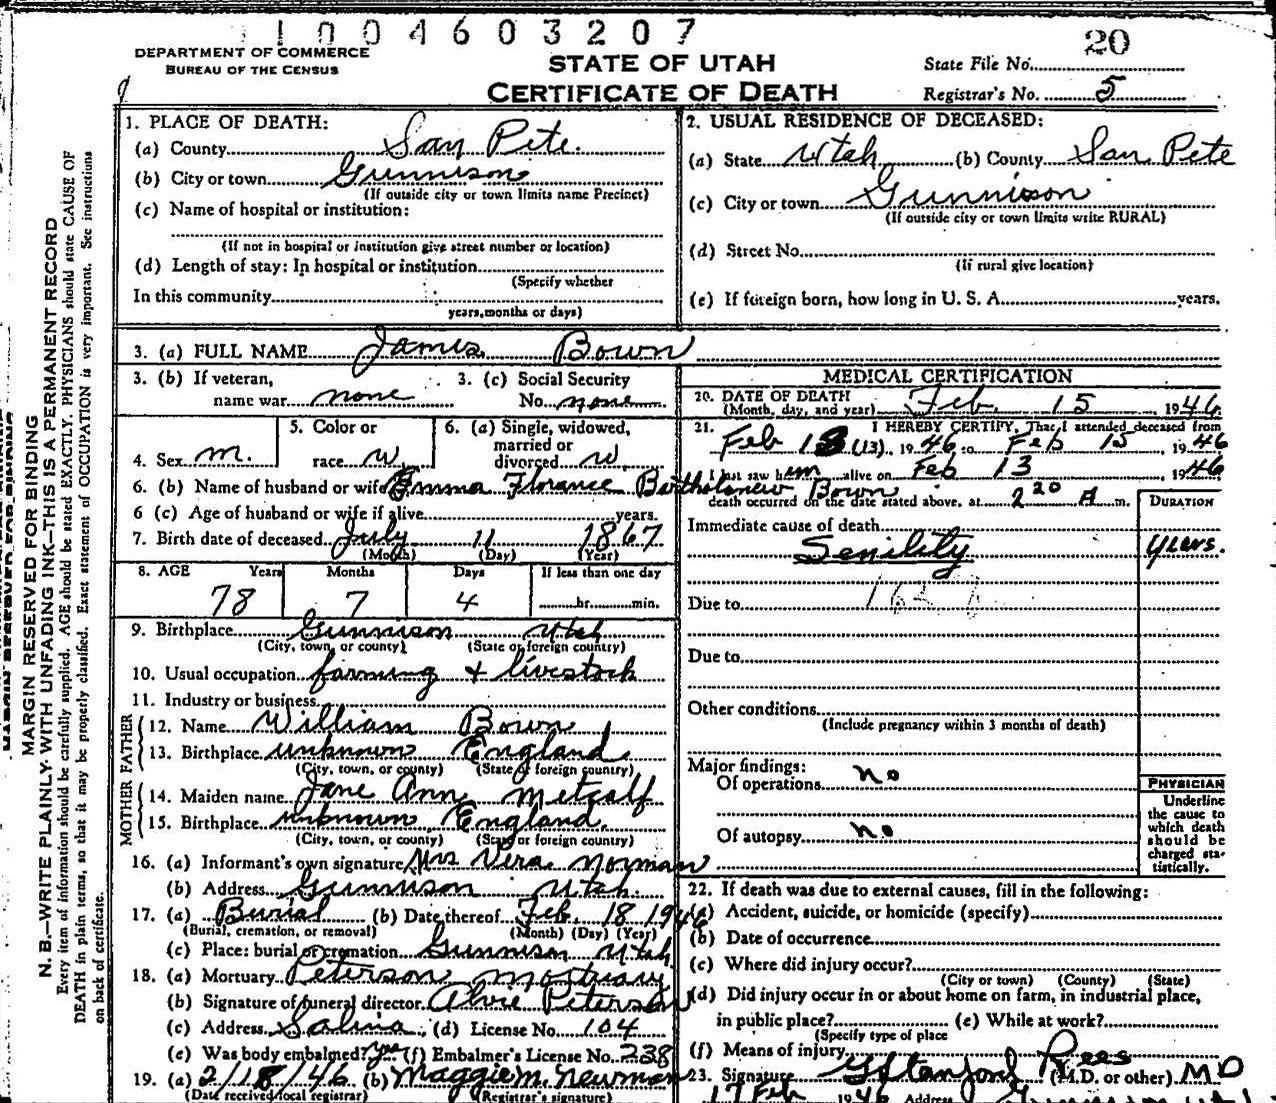 1004603207
DEPARTMENT OF COMMERCE
BUREAU OF THE CENSUS
STATE OF UTAH
CERTIFICATE OF DEATH
20
State File No.
Registrar's No. 5
MARGIN RESERVED FOR BINDING
N. B.—WRITE PLAINLY WITH UNFADING INK—THIS IS A PERMANENT RECORD
Every item of information should be carefully supplied. AGE should be stated EXACTLY. PHYSICIANS should state CAUSE OF
DEATH in plain terms, so that it may be properly classified. Exact statement of OCCUPATION is very important. See instructions
on back of certificate.
1. PLACE OF DEATH:
(a) County San Pete.
(b) City or town Gunnison
(If outside city or town limits name Precinct)
(c) Name of hospital or institution:
(If not in hospital or institution give street number or location)
(d) Length of stay: In hospital or institution
(Specify whether
In this community
years, months or days)
2. USUAL RESIDENCE OF DECEASED:
(a) State Utah (b) County San Pete
(c) City or town Gunnison
(If outside city or town limits write RURAL)
(d) Street No.
(If rural give location)
(e) If foreign born, how long in U. S. A. years.
3. (a) FULL NAME James Bown
3. (b) If veteran,
name war none
3. (c) Social Security
No. none
4. Sex m.
5. Color or
race w.
6. (a) Single, widowed,
married or
divorced w
6. (b) Name of husband or wife Emma Florance Bartholomew Bown
6 (c) Age of husband or wife if alive years.
7. Birth date of deceased July 11 1867
(Month) (Day) (Year)
8. AGE Years Months Days If less than one day
78 7 4 hr. min.
9. Birthplace Gunnison Utah
(City, town, or county) (State or foreign country)
10. Usual occupation farming + livestock
11. Industry or business
FATHER
12. Name William Bown
13. Birthplace unknown England
(City, town, or county) (State or foreign country)
MOTHER
14. Maiden name Jane Ann Metcalf
15. Birthplace unknown England.
(City, town, or county) (State or foreign country)
16. (a) Informant's own signature Mrs Vera Norman
(b) Address Gunnison Utah.
17. (a) Burial (b) Date thereof Feb. 18 1946
(Burial, cremation, or removal) (Month) (Day) (Year)
(c) Place: burial or cremation Gunnison Utah
18. (a) Mortuary Peterson Mortuary
(b) Signature of funeral director Alvie Peterson
(c) Address Salina (d) License No. 104
(e) Was body embalmed? yes (f) Embalmer's License No. 238
19. (a) 2/18/46 (b) Maggie M. Newman
(Date received local registrar) (Registrar's signature)
MEDICAL CERTIFICATION
20. DATE OF DEATH
(Month, day, and year) Feb. 15 1946
21. I HEREBY CERTIFY, That I attended deceased from
Feb 13 (13), 1946 to Feb 15, 1946
I last saw him alive on Feb 13 1946
death occurred on the date stated above, at 2 20 A m.
DURATION
Immediate cause of death
Senility years.
Due to
Due to
Other conditions
(Include pregnancy within 3 months of death)
Major findings:
Of operations no
Of autopsy no
PHYSICIAN
Underline
the cause to
which death
should be
charged sta-
tistically.
22. If death was due to external causes, fill in the following:
(a) Accident, suicide, or homicide (specify)
(b) Date of occurrence
(c) Where did injury occur?
(City or town) (County) (State)
(d) Did injury occur in or about home on farm, in industrial place,
in public place? (e) While at work?
(Specify type of place
(f) Means of injury
23. Signature G Stanford Rees (M.D. or other) MD
17 Feb 1946 Address Gunnison Utah